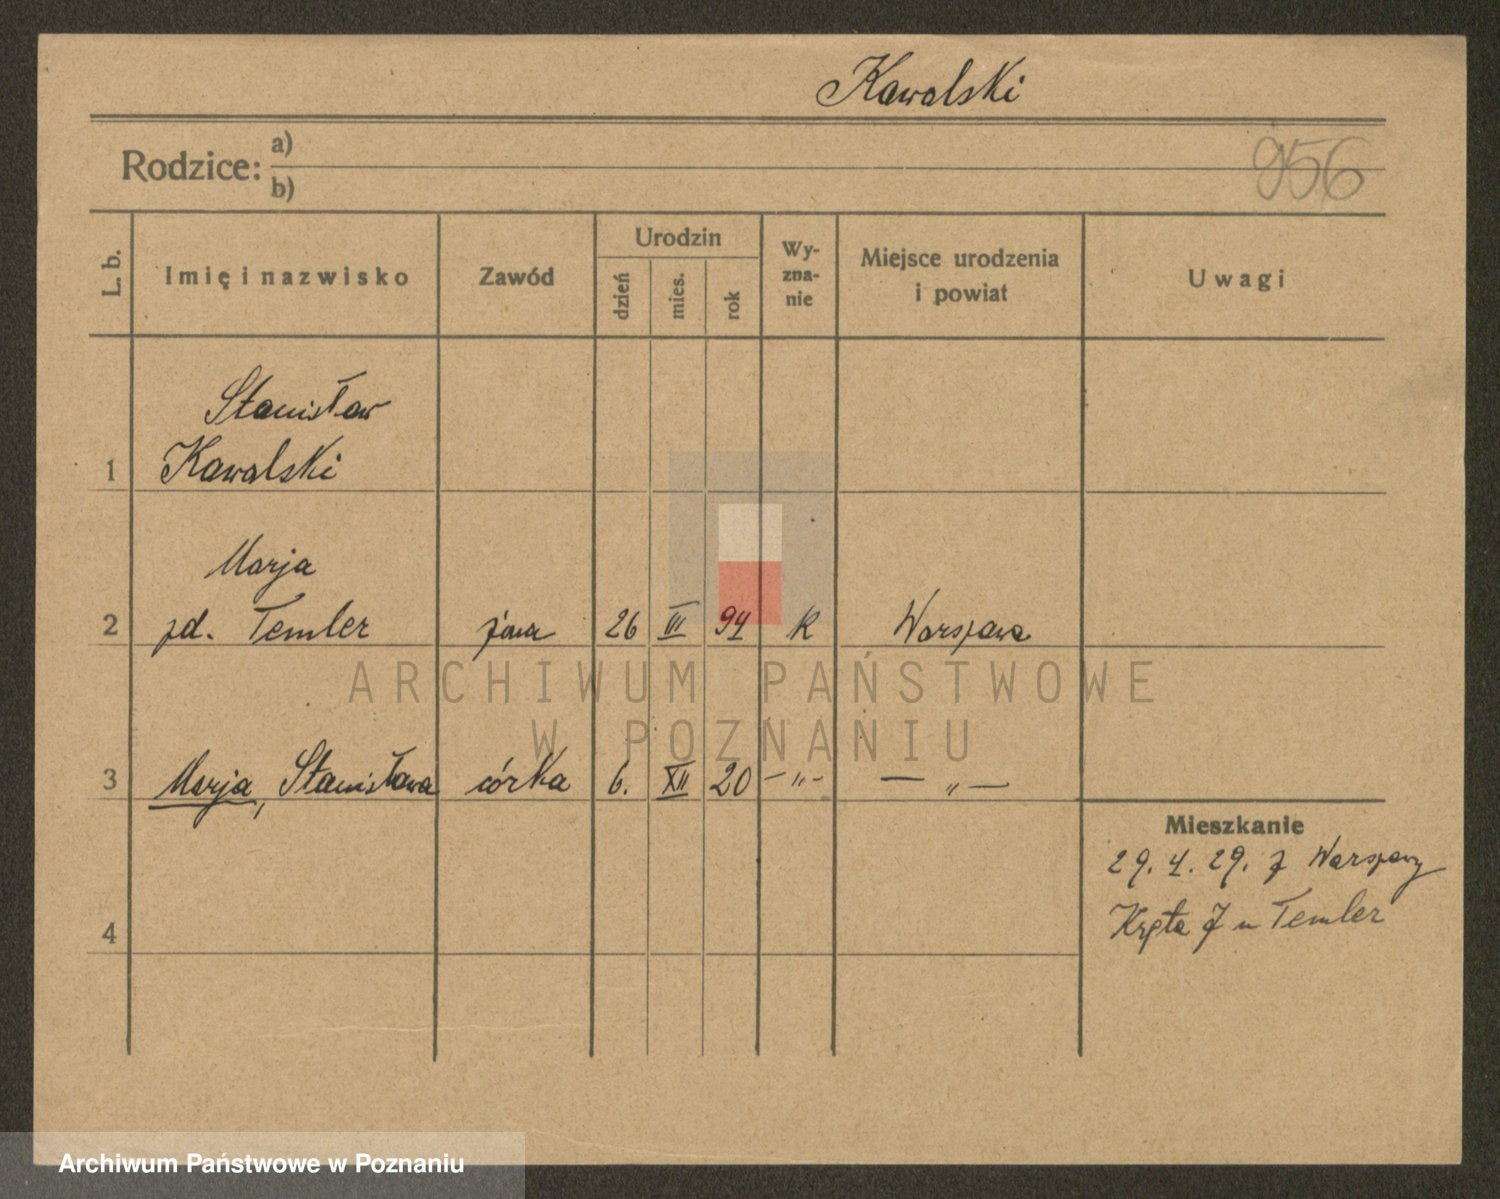 Kawalski
Rodzice: a)
b)
956
L. b.
Imię i nazwisko
Zawód
Urodzin
dzień
mies.
rok
Wy-
zna-
nie
Miejsce urodzenia
i powiat
Uwagi
Stanisław
1 Kawalski
Marja
2 zd. Temler żona 26 III 94 R Warszawa
ARCHIWUM PAŃSTWOWE
W POZNANIU
3 Marja, Stanisława córka 6. XII 20 -"- -"-
Mieszkanie
29. 4. 29. z Warszawy
4
Kręta 7 u Temler
Archiwum Państwowe w Poznaniu